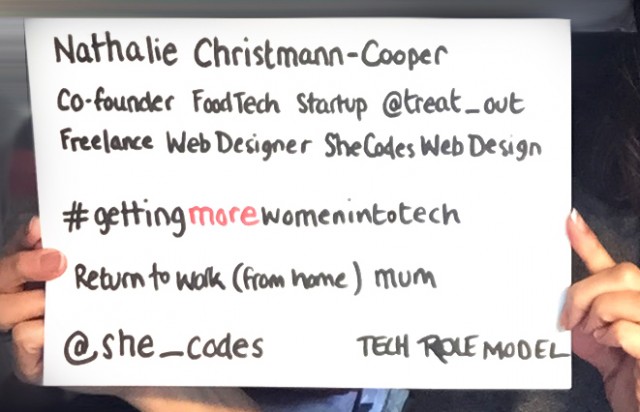 Nathalie Christmann-Cooper
Co-founder FoodTech Startup @treat_out
Freelance Web Designer SheCodes Web Design
#gettingmorewomenintotech
Return to work (from home) mum
@she_codes TECH ROLE MODEL